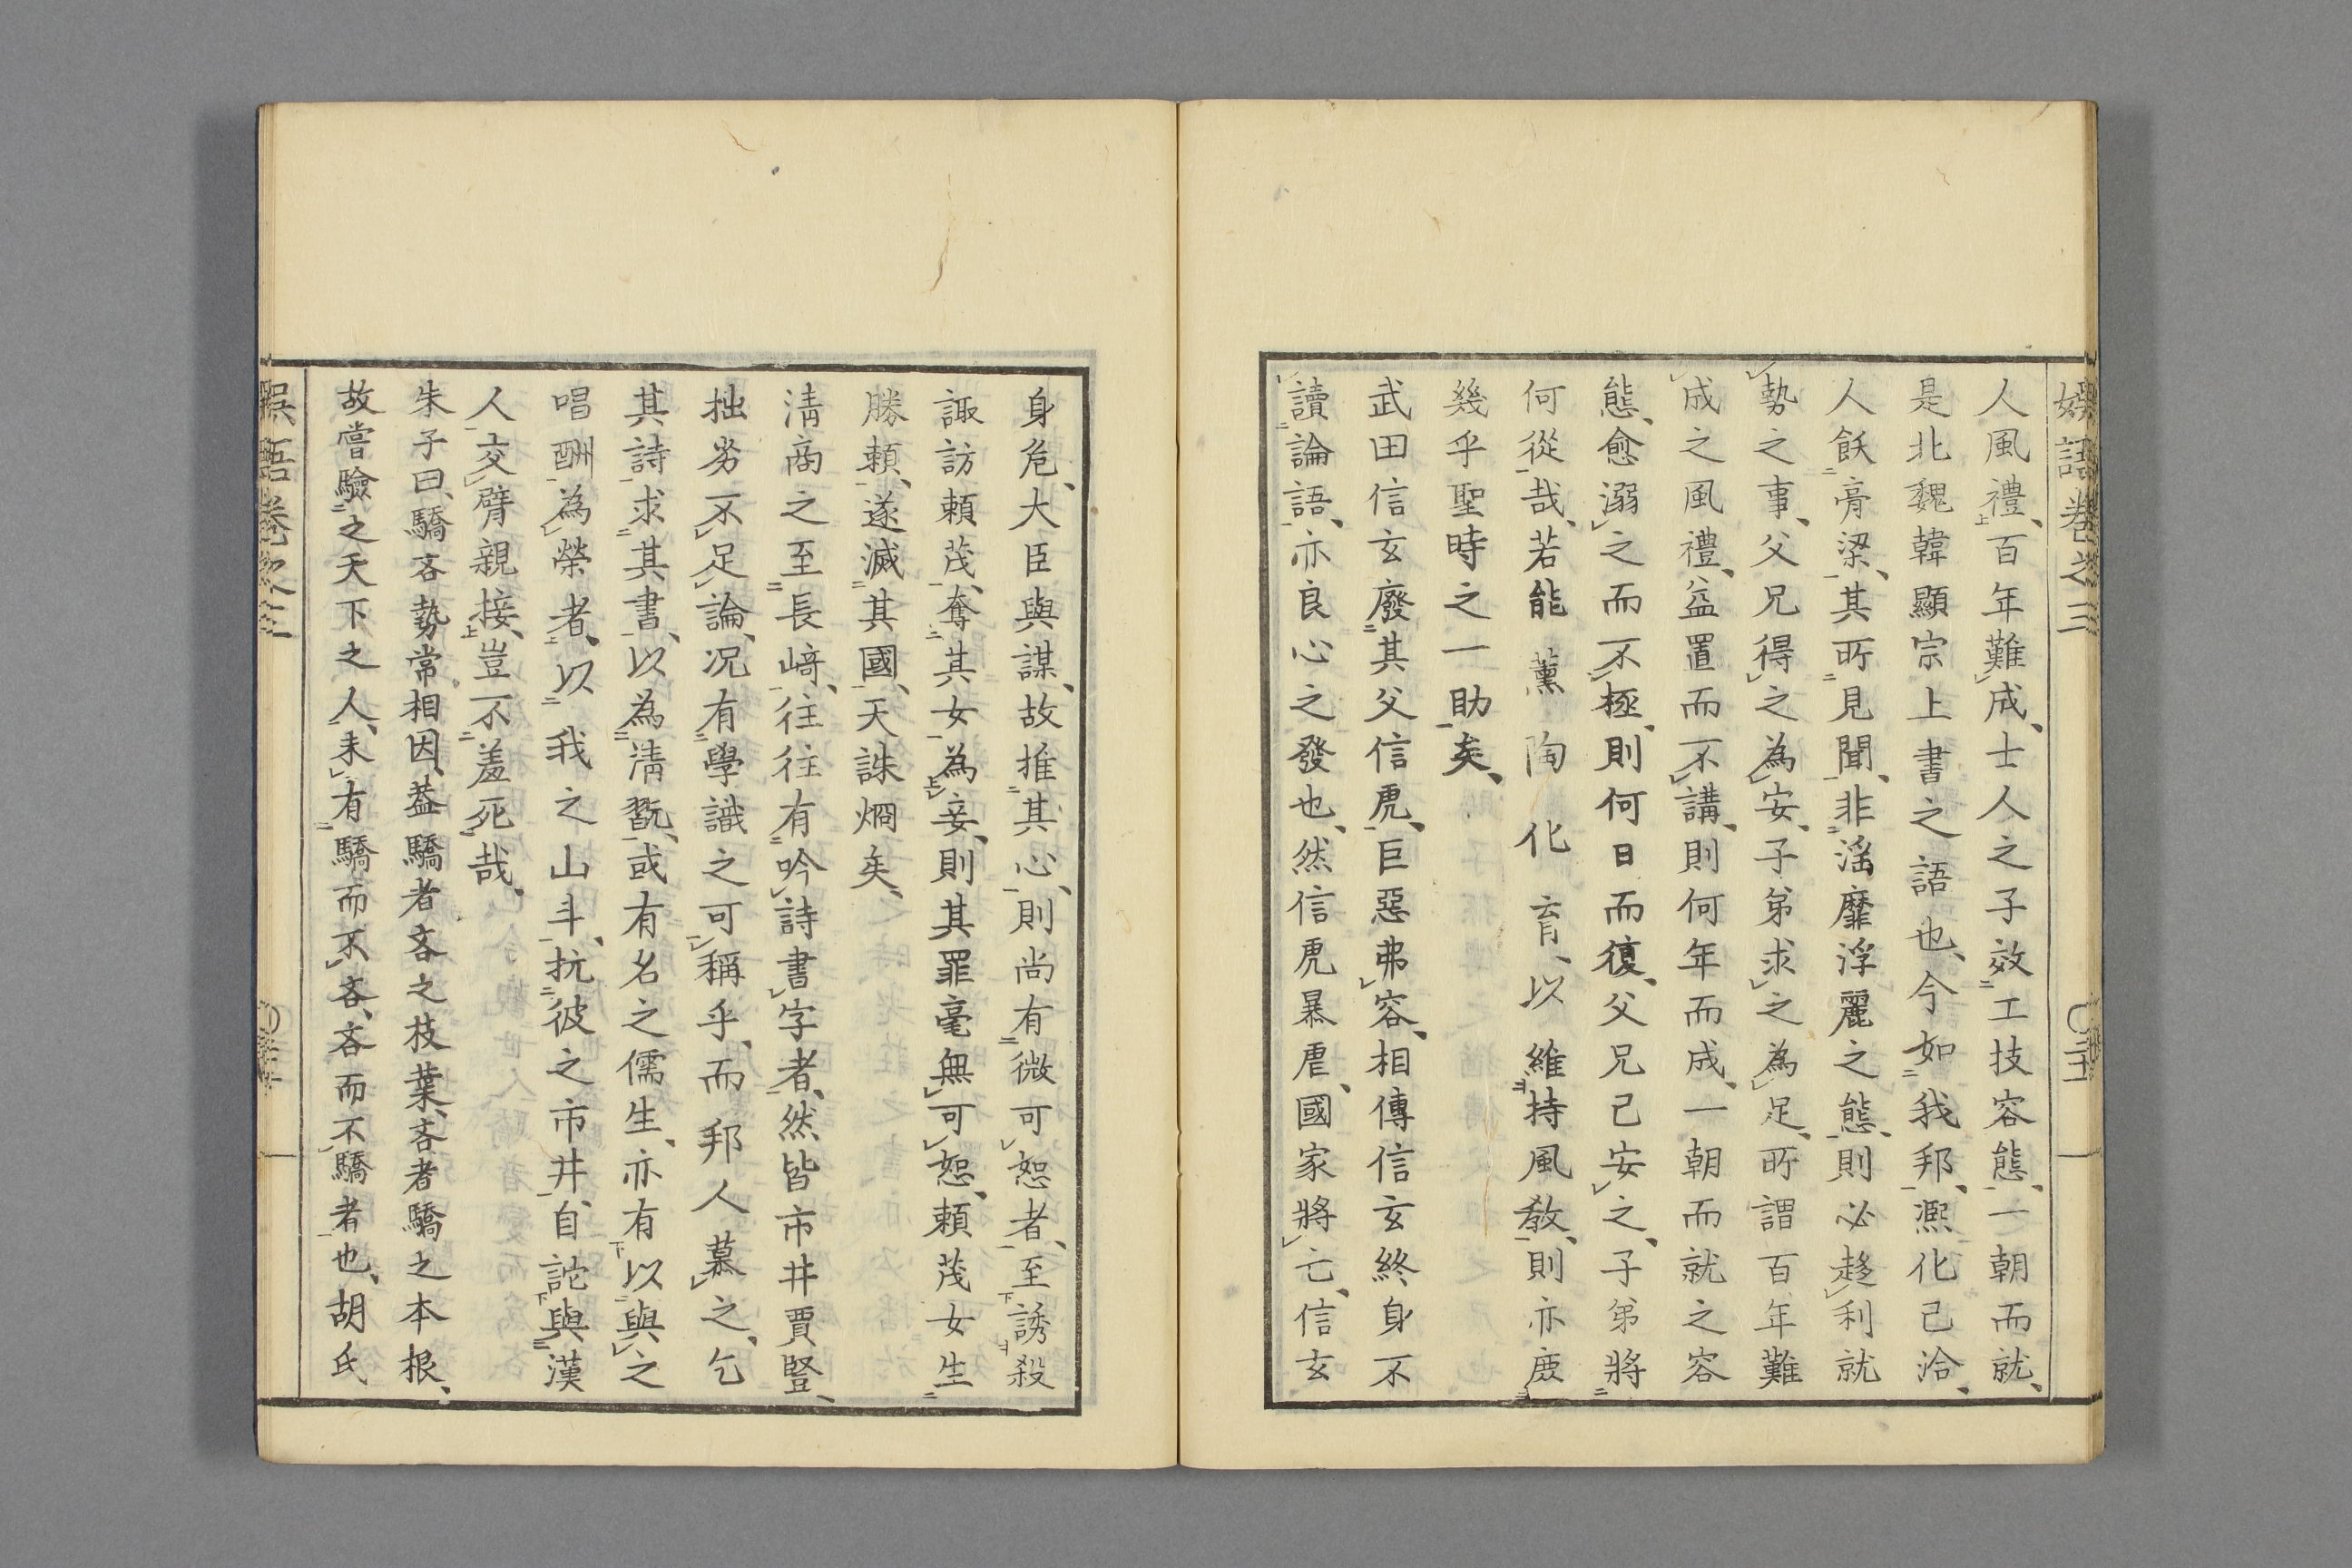 娯語卷之三
人風禮、百年難成、士人之子效工技容態、一朝而就、
是北魏韓顯宗上書之語也、今如我邦、熈化已洽、
人飫膏粱、其所見聞、非滛靡浮麗之態、則必趍利就
勢之事、父兄得之為安、子弟求之為足、所謂百年難
成之風禮、益置而不講、則何年而成、一朝而就之容
態、愈溺之而不極、則何日而復、父兄已安之、子弟將
何從哉、若能薰陶化育、以維持風教、則亦庶
幾乎聖時之一助矣、
武田信玄廢其父信虎、巨惡弗容、相傳信玄終身不
讀論語、亦良心之發也、然信虎暴虐、國家將亡、信玄
身危、大臣與謀、故推其心、則尚有微可恕者、至誘殺
諏訪頼茂、奪其女為妾、則其罪毫無可恕、頼茂女生
勝頼、遂滅其國、天誅烱矣、
淸商之至長﨑、往往有吟詩書字者、然皆市井賈豎、
拙劣不足論、况有學識之可稱乎、而邦人慕之、乞
其詩求其書、以為淸翫、或有名之儒生、亦有以與之
唱酬為榮者、以我之山斗、抗彼之市井、自詑與漢
人交臂親接、豈不羞死哉、
朱子曰、驕吝勢常相因、葢驕者吝之枝葉、吝者驕之本根、
故嘗驗之天下之人、未有驕而不吝、吝而不驕者也、胡氏
娯語卷之三